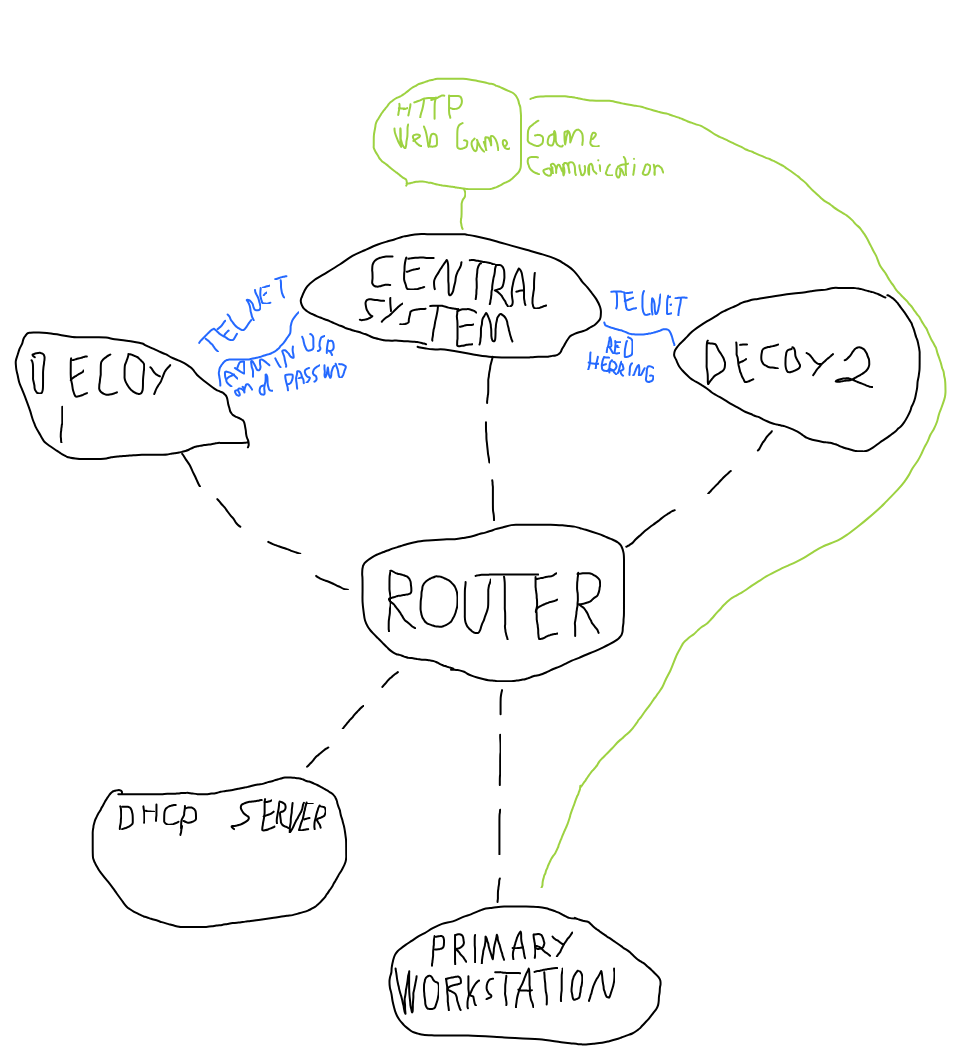 HTTP
Web Game
Game
Communication
CENTRAL
SYSTEM
TELNET
ADMIN USR
and PASSWD
TELNET
RED
HERRING
DECOY
1
DECOY 2
ROUTER
DHCP SERVER
PRIMARY
WORKSTATION